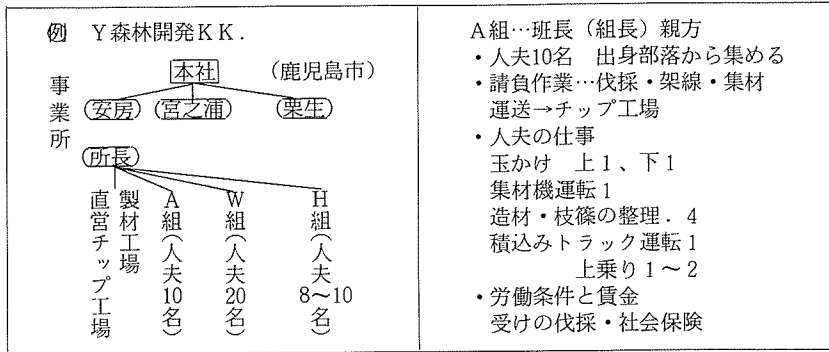 例 Y森林開発KK.
本社 (鹿児島市)
事業所
安房 宮之浦 栗生
所長
直営チップ工場
製材工場
A組(人夫10名)
W組(人夫20名)
H組(人夫8〜10名)
A組…班長(組長)親方
・人夫10名 出身部落から集める
・請負作業…伐採・架線・集材
運送→チップ工場
・人夫の仕事
玉かけ 上1、下1
集材機運転1
造材・枝篠の整理.4
積込みトラック運転1
上乗り1〜2
・労働条件と賃金
受けの伐採・社会保険